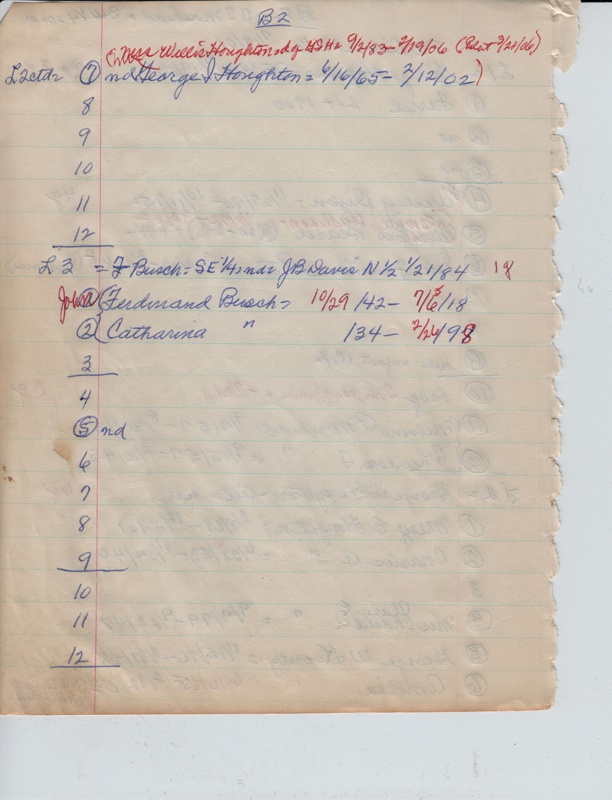 B2
Willis Houghton 9/2/83 - 2/19/06 (Plat 3/21/06)
L2ctd= 7 nd George I Houghton = 6/16/65 - 2/12/02)
8
9
10
11
12
L 3 = F Busch = SE 1/4; nd = JB Davis N 1/2 1/21/84 18
John 1 Ferdinand Busch = 10/29/42 - 7/ /18
2 Catharina " /34 - 2/26/98
3
4
5 nd
6
7
8
9
10
11
12